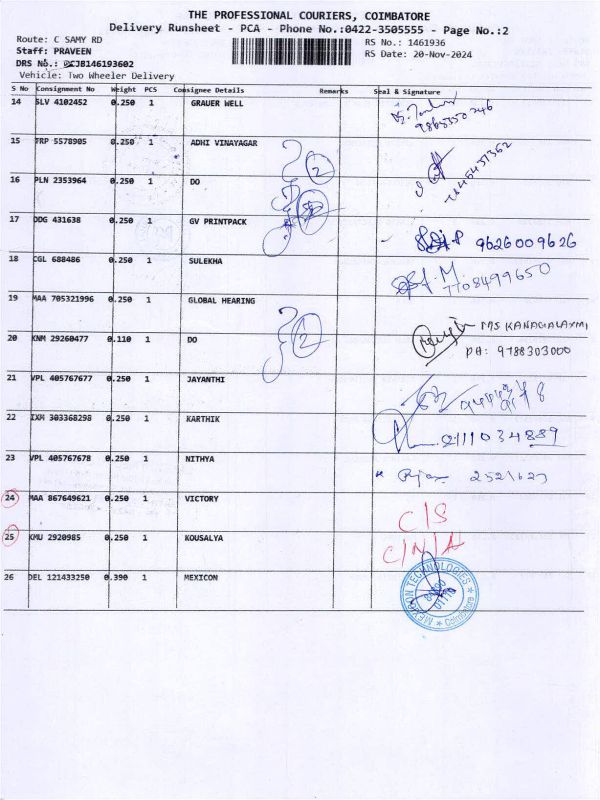 THE PROFESSIONAL COURIERS, COIMBATORE
Delivery Runsheet - PCA - Phone No.:0422-3505555 - Page No.:2
Route: C SAMY RD
RS No.: 1461936
Staff: PRAVEEN
RS Date: 20-Nov-2024
DRS No.: CJB146193602
Vehicle: Two Wheeler Delivery
S No Consignment No Weight PCS Consignee Details Remarks Seal & Signature
14 SLV 4102452 0.250 1 GRAUER WELL
15 TRP 5578905 0.250 1 ADHI VINAYAGAR
2
16 PLN 2353964 0.250 1 DO
17 DDG 431638 0.250 1 GV PRINTPACK
9626009626
18 CGL 688486 0.250 1 SULEKHA
7708499650
19 MAA 705321996 0.250 1 GLOBAL HEARING
MS KANAGALAXMI
20 KNM 29260477 0.110 1 DO
2
PH: 9788303000
21 VPL 405767677 0.250 1 JAYANTHI
22 IXM 303368298 0.250 1 KARTHIK
23 VPL 405767678 0.250 1 NITHYA
24 MAA 867649621 0.250 1 VICTORY
C/S
25 KMU 2920985 0.250 1 KOUSALYA
C/N/A
26 DEL 121433250 0.390 1 MEXICON
TECHNOLOGIES
Coimbatore